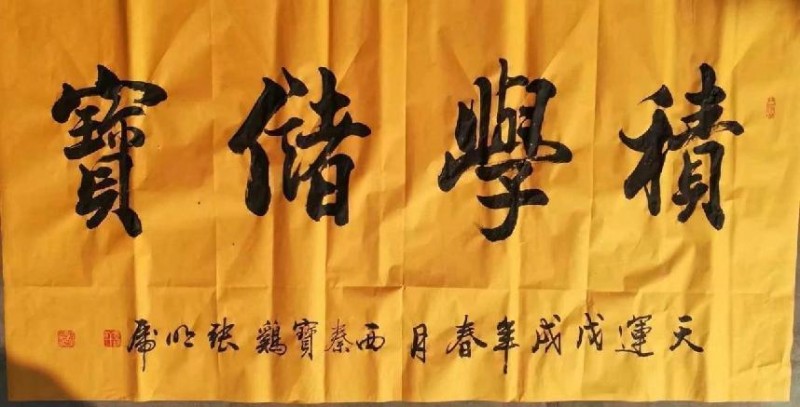 積學儲寶
天運戊戌年春月西秦寶鷄張小虎